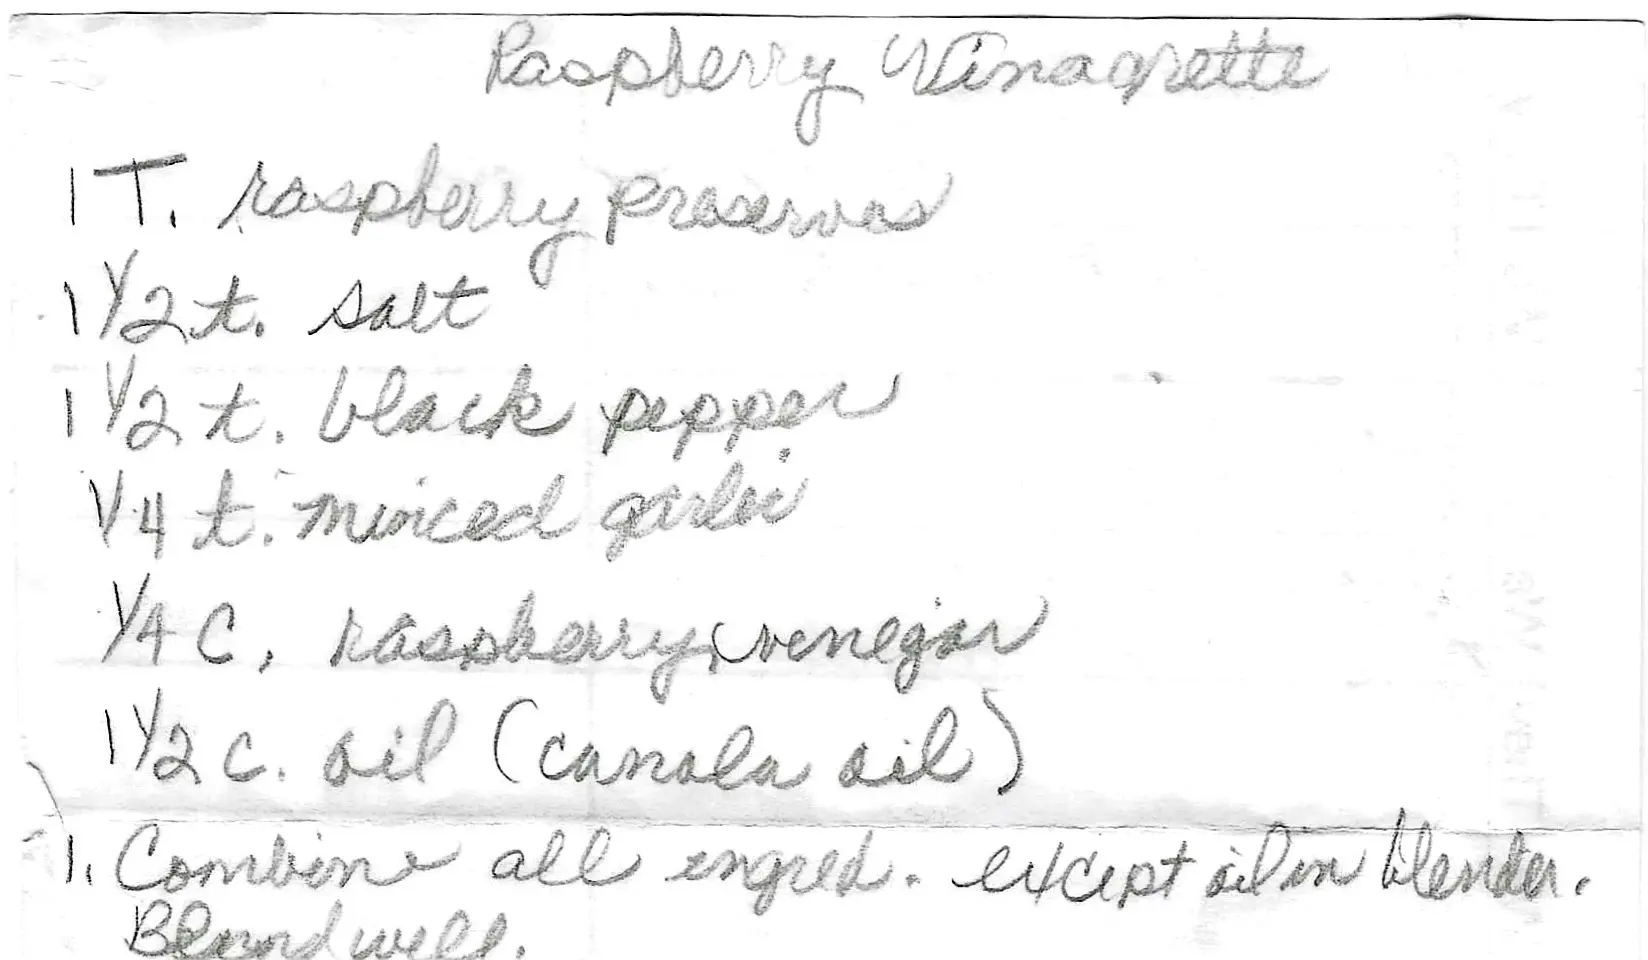 Raspberry Vinagrette
1 T. raspberry preserves
1 1/2 t. salt
1 1/2 t. black pepper
1/4 t. minced garlic
1/4 C. raspberry venegar
1 1/2 c. oil (canola oil)
1. Combine all ingred. except oil in blender.
Blend well.